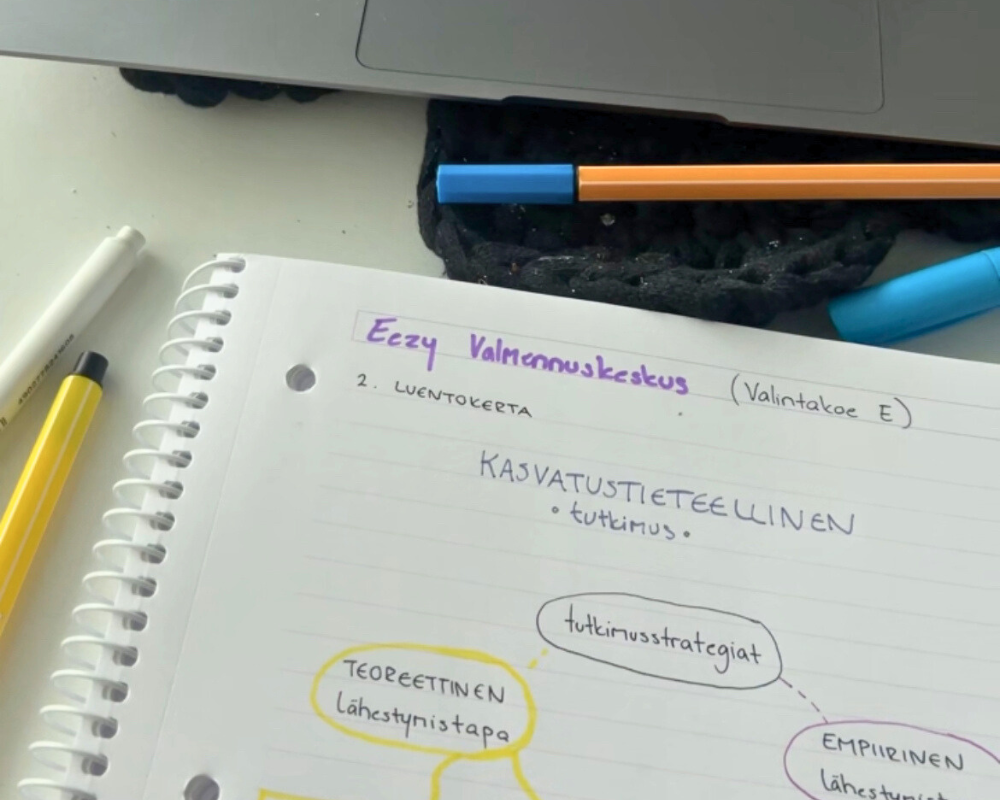 Eezy Valmennuskeskus (Valintakoe E)
2. LUENTOKERTA
KASVATUSTIETEELLINEN
• tutkimus •
tutkimusstrategiat
TEOREETTINEN
lähestymistapa
EMPIIRINEN